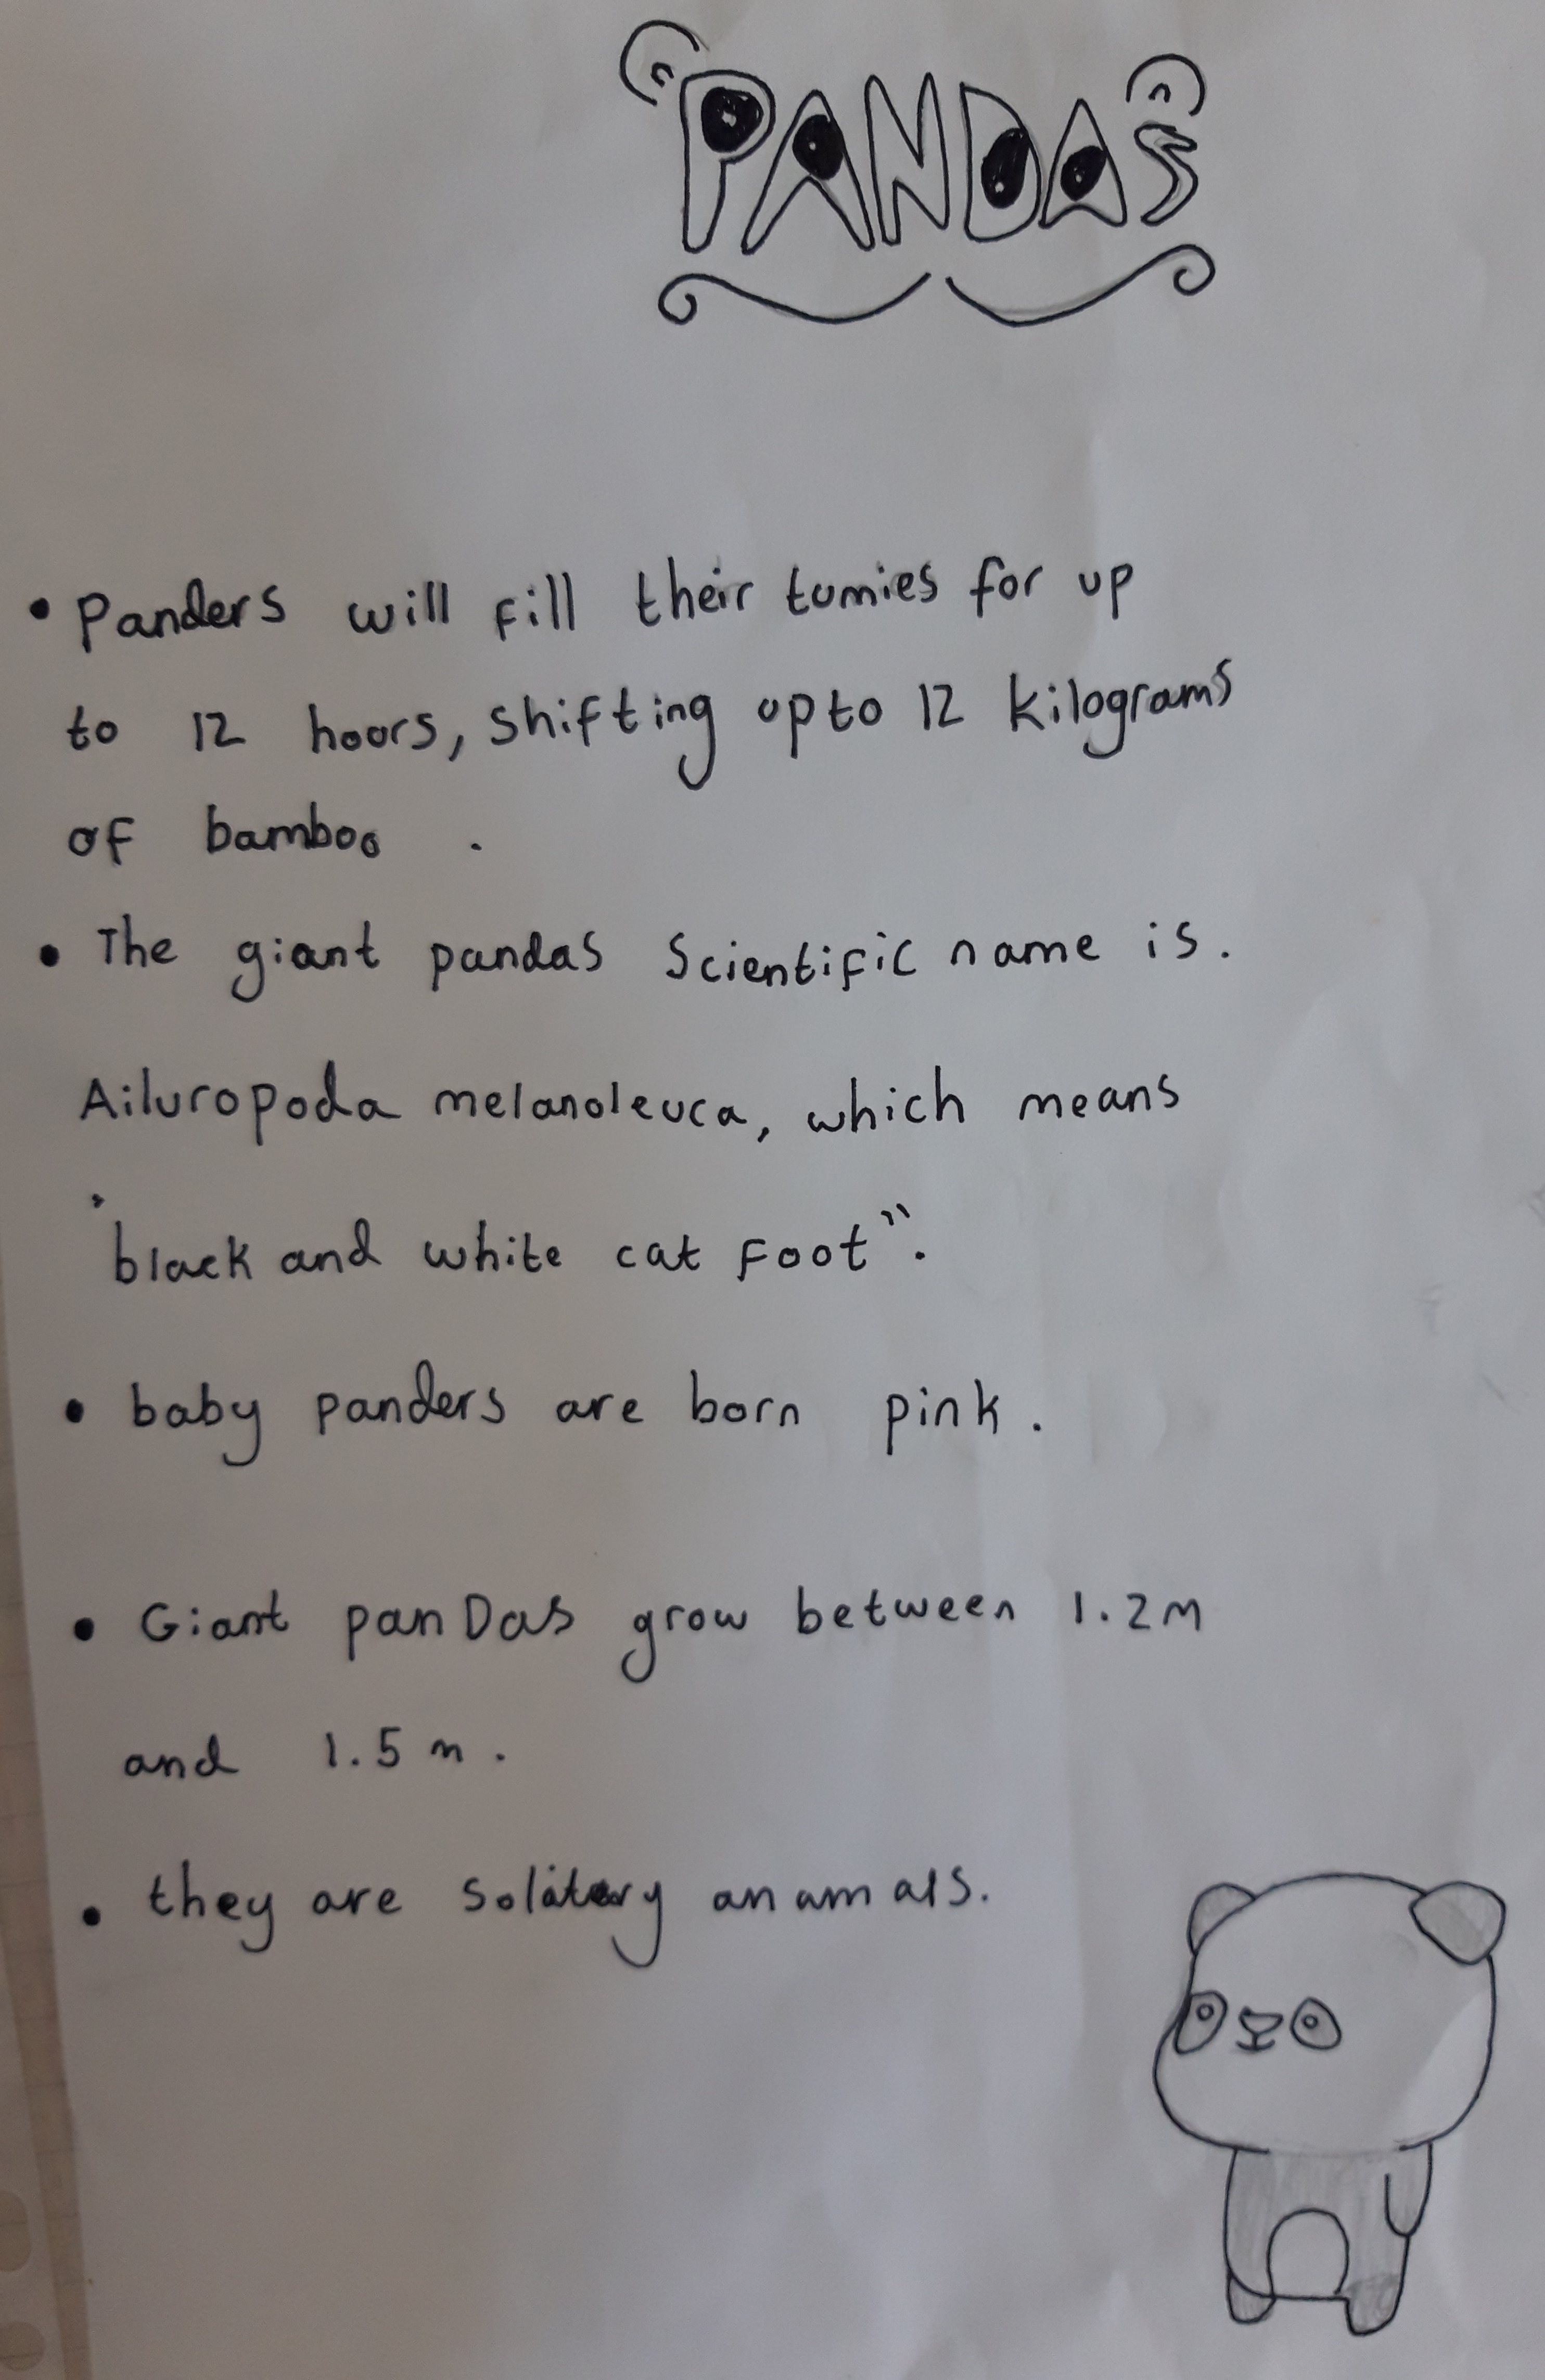 PANDAS
• Panders will fill their tumies for up
to 12 hoors, shifting up to 12 kilograms
of bamboo .
• The giant pandas scientific name is.
Ailuropoda melanoleuca, which means
"black and white cat foot".
• baby panders are born pink.
• Giant panDas grow between 1.2m
and 1.5m.
• they are solitary anamals.